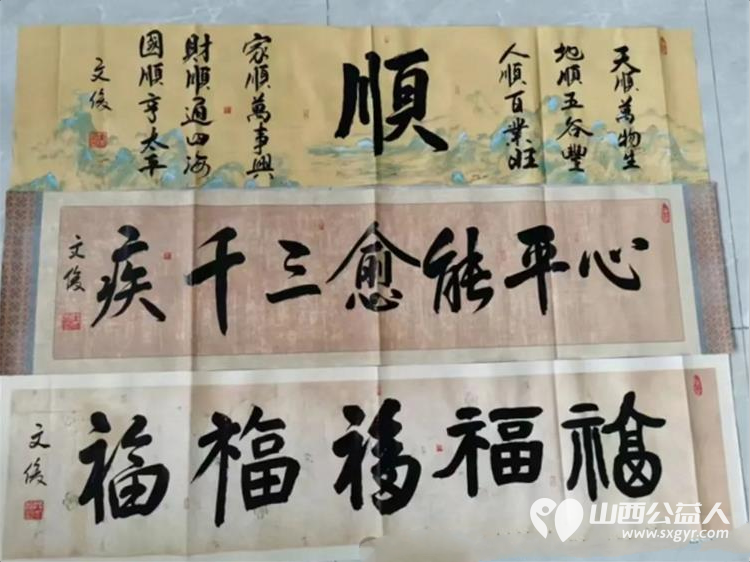 天順萬物生
地順五谷豐
人順百業旺
順
家順萬事興
財順通四海
國順亨太平
文俊
心平能愈三千疾
文俊
福福福福福
文俊
山西公益人
www.sxgyr.com